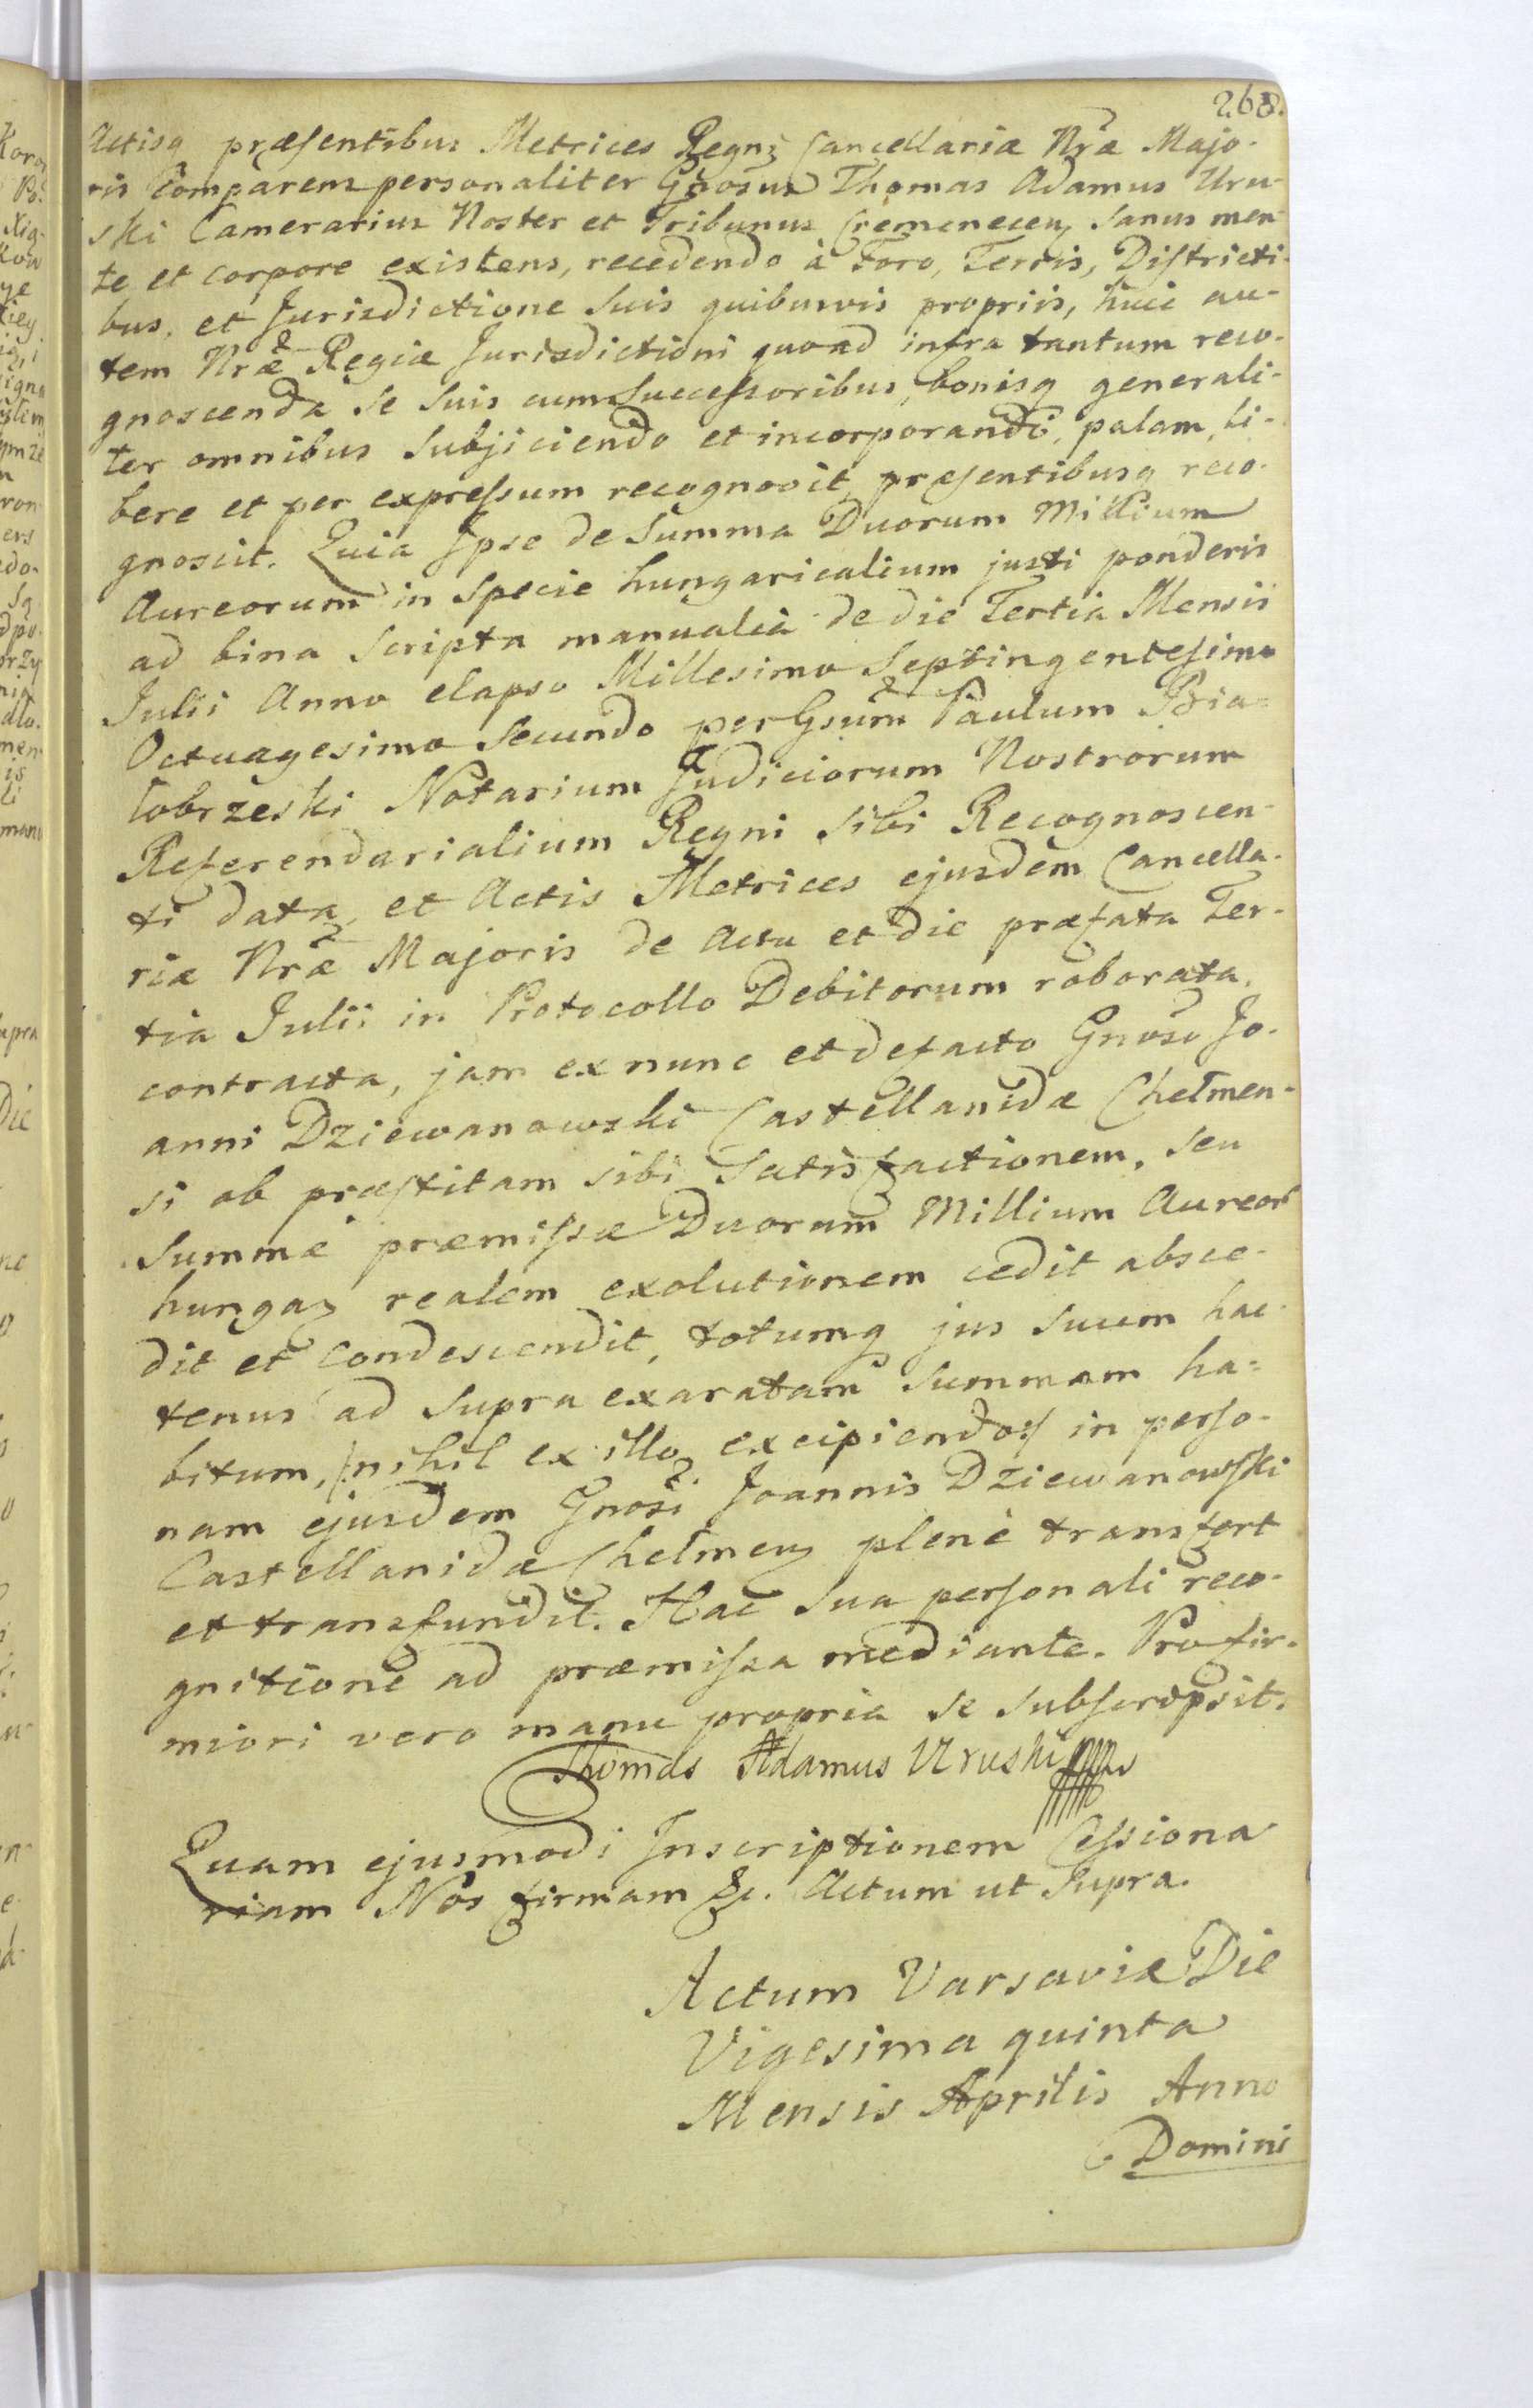 268.
Actisq præsentibus Metrices Regni Cancellariæ Nræ Majo-
ris Comparens personaliter Gnosus Thomas Adamus Uru-
ski Camerarius Noster et Tribunus Cremenecen, Sanus men-
te et corpore existens, recedendo à Foro, Terris, Districti-
bus, et Jurisdictione Suis quibusvis propriis, huic au-
tem Nræ Regiæ Jurisdictioni quoad infra tantum reco-
gnoscenda Se Suis cum Successoribus, bonisq generali-
ter omnibus Subjiciendo et incorporando, palam, li-
bere et per expressum recognovit, præsentibusq reco-
gnoscit. Quia Ipse de Summa Duorum Millium
Aureorum in Specie hungaricalium justi ponderis
ad bina Scripta manualia de die Tertia Mensis
Julii Anno elapso Millesimo Septingentesimo
Octuagesimo Secundo per Gsum Paulum Bia-
łobrzeski Notarium Judiciorum Nostrorum
Referendarialium Regni Sibi Recognoscen-
ti data, et Actis Metrices ejusdem Cancella-
riæ Nræ Majoris de Actu et die præfata Ter-
tia Julii in Protocollo Debitorum roborata,
contracta, jam ex nunc et defacto Gnoso Jo-
anni Dziewanowski Castellanidæ Chełmen-
si ob præstitam sibi Satisfactionem, seu
Summæ præmissæ Duorum Millium Aureor
hungaz realem exolutionem cedit absce-
dit et Condescendit, totumq jus Suum hac-
tenus ad Supra exaratam Summam ha-
bitum, /:nihil ex illo excipiendo:/ in perso-
nam ejusdem Gnosi Joannis Dziewanowski
Castellanidæ Chełmen, plenè transfert
et transfundit. Hac Sua personali reco-
gnitione ad præmissa mediante. Pro fir-
miori vero manu propria se subscripsit.
Thomas Adamus Uruski
Quam ejusmodi Inscriptionem Cessiona
riam Nos firmam &c. Actum ut Supra.
Actum Varsaviæ Die
Vigesima quinta
Mensis Aprilis Anno
Domini